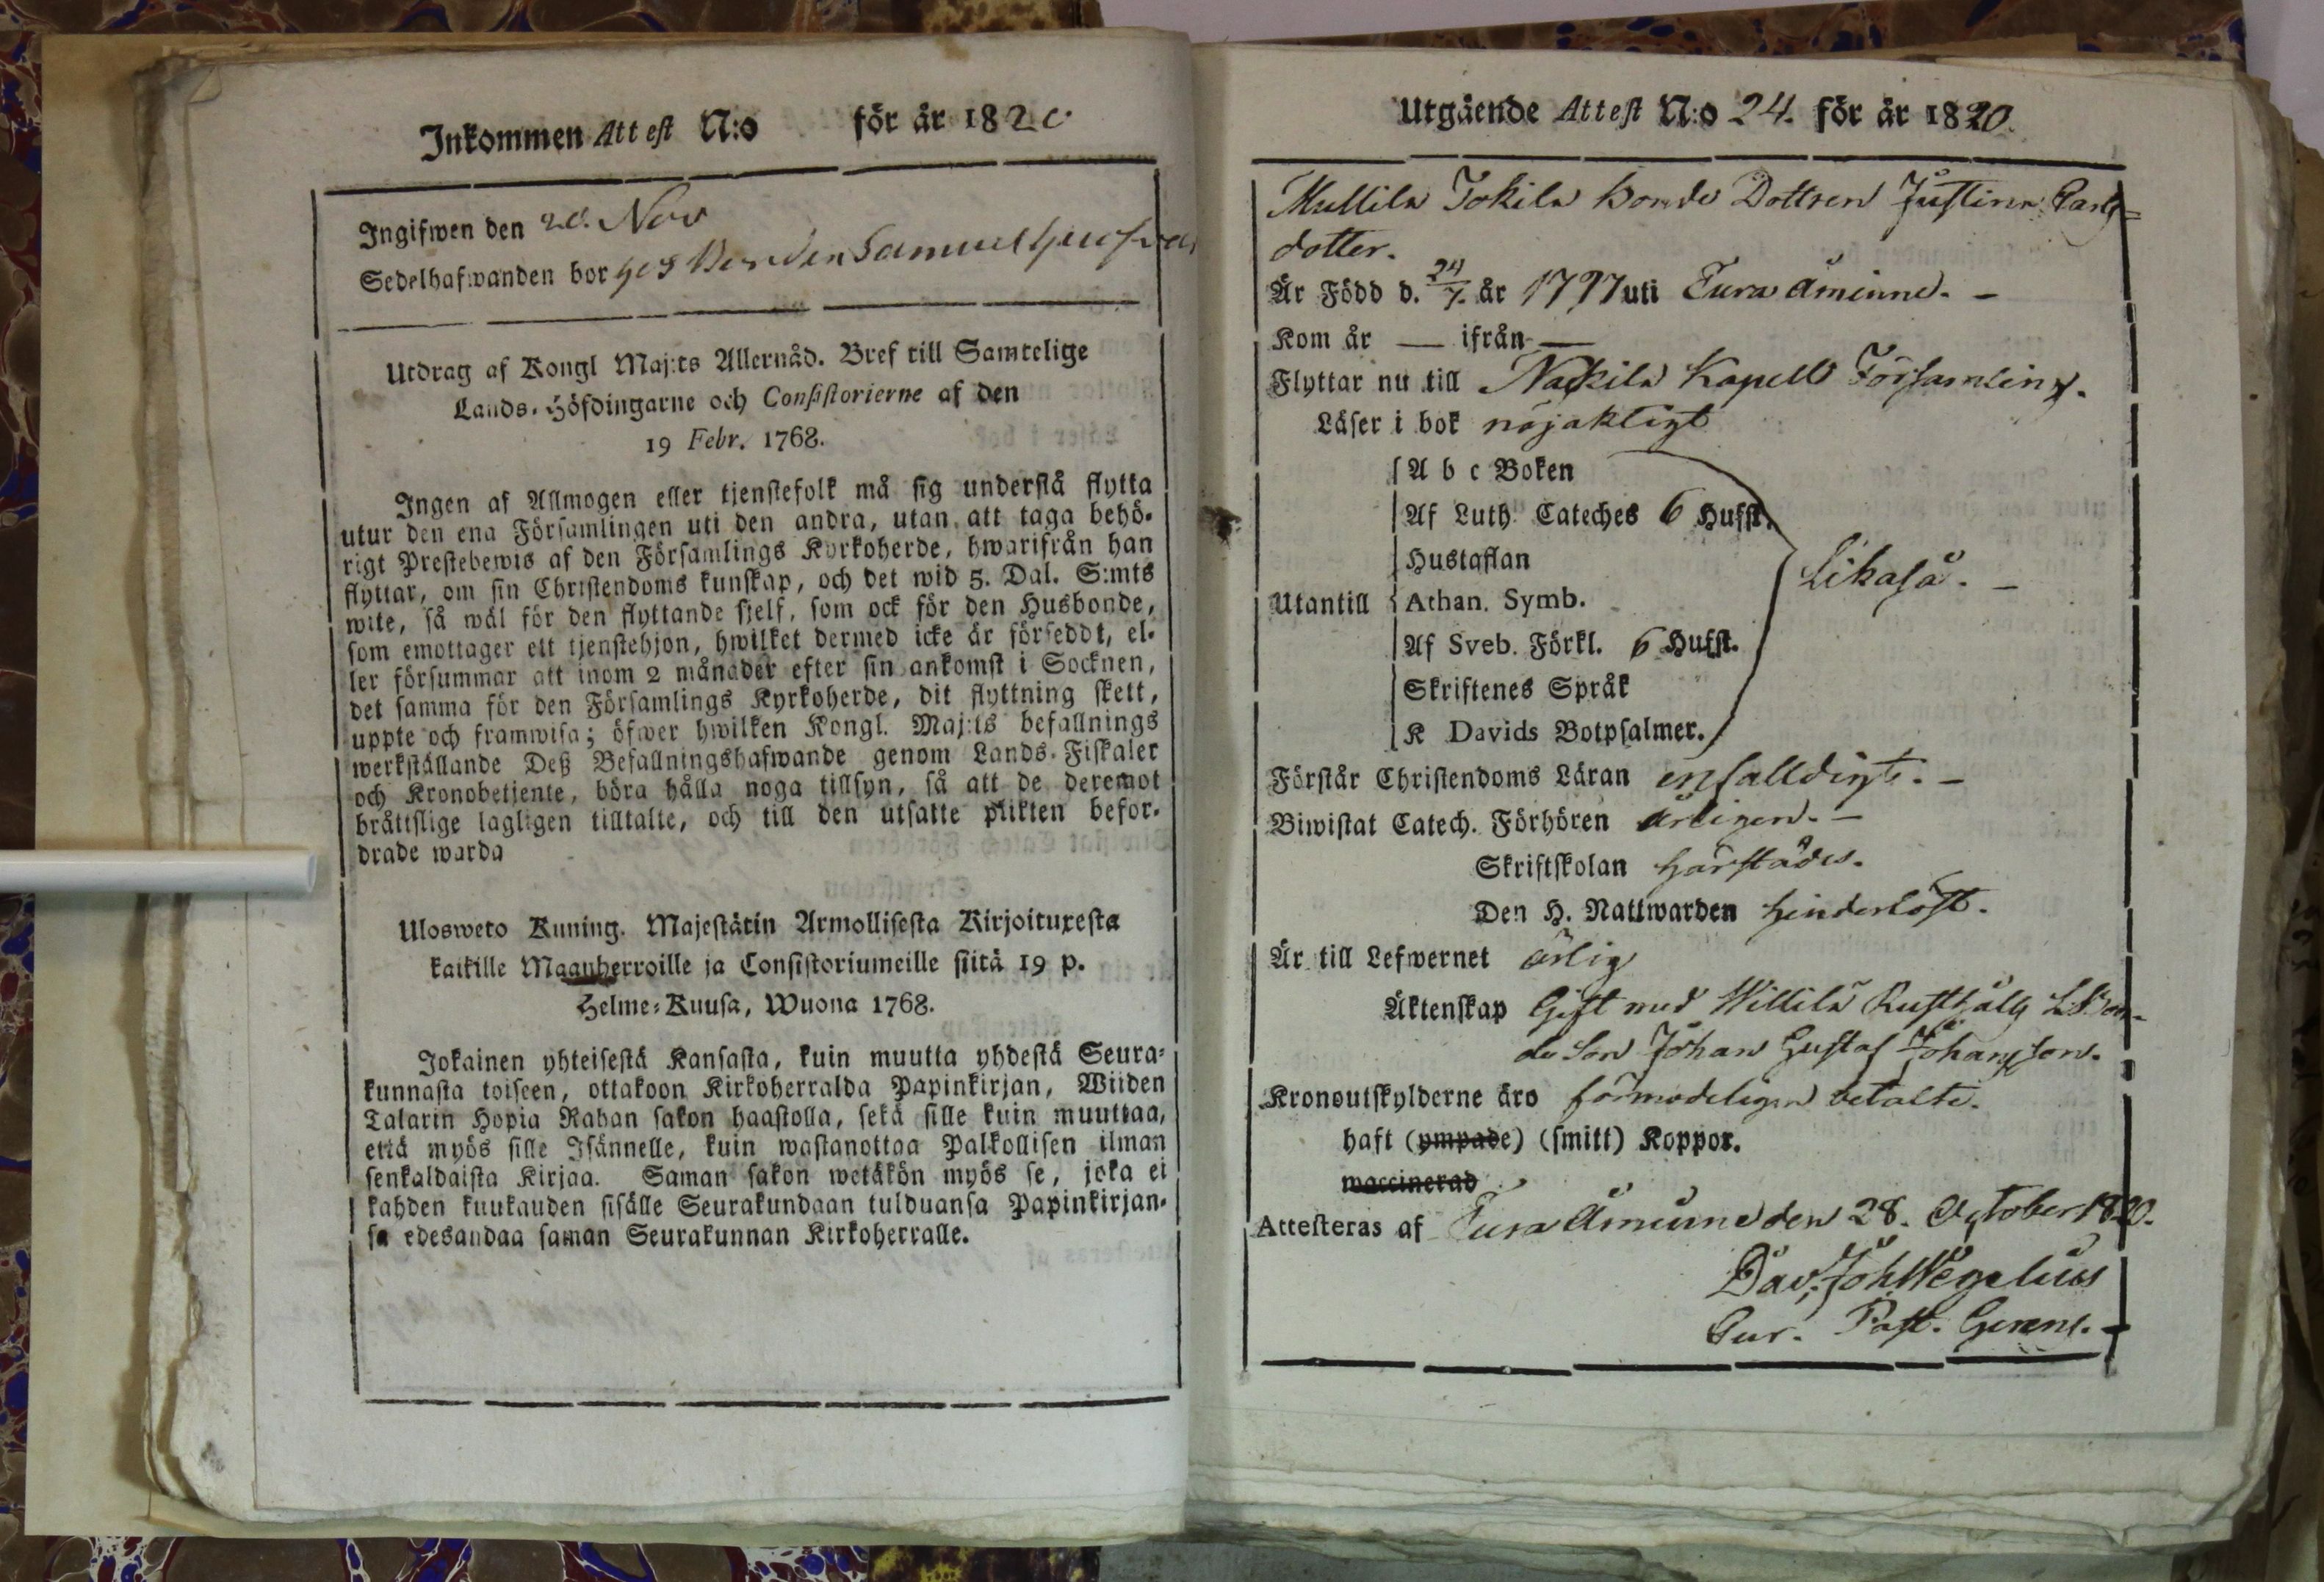 Inkommen Attest N:o för år 1820
Ingifwen den 20. Nov
Sedelhafwanden bor hos Bonden Samuel
Utdrag af Kongl Maj:ts Allernåd. Bref till Samtelige
Lands-Höfdingarne och Consistorierne af den
19 Febr. 1768.
Ingen af Allmogen eller tjenstefolk må sig understå flytta
utur den ena Församlingen uti den andra, utan att taga behö-
rigt Prestebewis af den Församlings Kyrkoherde, hwarifrån han
flyttar, om sin Christendoms kunskap, och det wid 5. Dal. S:mts
wite, så wäl för den flyttande sjelf, som ock för den Husbonde,
som emottager ett tjenstehjon, hwilket dermed icke är förseddt, el-
ler försummar att inom 2 månader efter sin ankomst i Socknen,
det samma för den Församlings Kyrkoherde, dit flyttning skett,
uppte och framwisa; öfwer hwilken Kongl. Maj:ts befallnings
werkställande Deß Befallningshafwande genom Lands-Fiskaler
och Kronobetjente, böra hålla noga tillsyn, så att de deremot
bråttslige lagligen tilltalte, och till den utsatte plikten befor-
drade warda
Ulosweto Kuning. Majestätin Armollisesta Kirjoituxesta
kaikille Maanherroille ja Consistoriumeille siitä 19 p.
Helme-Kuusa, Wuona 1768.
Jokainen yhteisestä Kansasta, kuin muutta yhdestä Seura-
kunnasta toiseen, ottakoon Kirkoherralda Papinkirjan, Wiiden
Talarin Hopia Rahan sakon haastolla, sekä sille kuin muuttaa,
että myös sille Isännelle, kuin wastanottaa Palkollisen ilman
senkaldaista Kirjaa. Saman sakon wetäkön myös se, joka ei
kahden kuukauden sisälle Seurakundaan tulduansa Papinkirjan-
sa edesandaa saman Seurakunnan Kirkoherralle.
Utgående Attest N:o 24. för år 1820.
Mullila Jokila Bonde Dottren Justina Carls-
dotter.
Är Född d. 24/7. år 1797 uti Eura Åminne. -
Kom år — ifrån —
Flyttar nu till Nackila Kapells Församling.
Läser i bok nöjaktigt
A b c Boken
Af Luth Cateches 6 Hufst.
Hustaflan
Utantill Athan. Symb. Likaså. -
Af Sveb. Förkl. 6 Hufst.
Skriftenes Språk
K Davids Botpsalmer.
Förstår Christendoms Läran enfalldigt. -
Biwistat Catech. Förhören årligen. -
Skriftskolan härstädes.
Den H. Nattwarden hinderlöst.
Är till Lefwernet ärlig
Äktenskap Gift med Willilä Rusthålls Bon-
de Son Johan Gustaf Johansson.
Kronoutskylderne äro förmodeligen betalte.
haft (ympade) (smitt) Koppor.
waccinerad
Attesteras af Eura Åminne den 28. October 1820.
Dav. Joh Wegelius
Cur. Past. Gerens. -